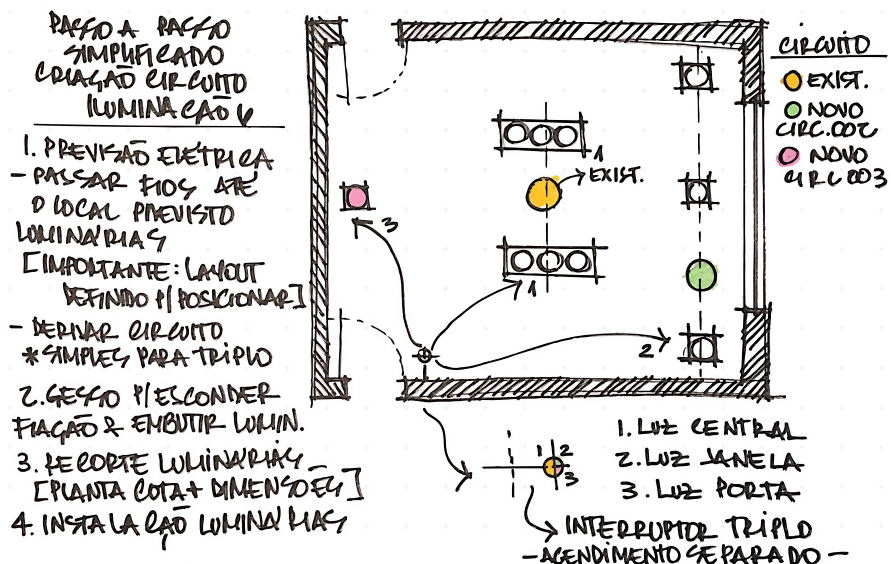 PASSO A PASSO
SIMPLIFICADO
CRIAÇÃO CIRCUITO
ILUMINAÇÃO
1. PREVISÃO ELÉTRICA
- PASSAR FIOS ATÉ
O LOCAL PREVISTO
LUMINÁRIAS
[IMPORTANTE: LAYOUT
DEFINIDO P/ POSICIONAR]
- DERIVAR CIRCUITO
* SIMPLES PARA TRIPLO
2. GESSO P/ ESCONDER
FIAÇÃO & EMBUTIR LUMIN.
3. RECORTE LUMINÁRIAS
[PLANTA COTA + DIMENSÕES]
4. INSTALAÇÃO LUMINÁRIAS
1
EXIST.
3
1
2
CIRCUITO
EXIST.
NOVO
CIRC.002
NOVO
CIRC 003
1 2
3
1. LUZ CENTRAL
2. LUZ JANELA
3. LUZ PORTA
INTERRUPTOR TRIPLO
- ACENDIMENTO SEPARADO -